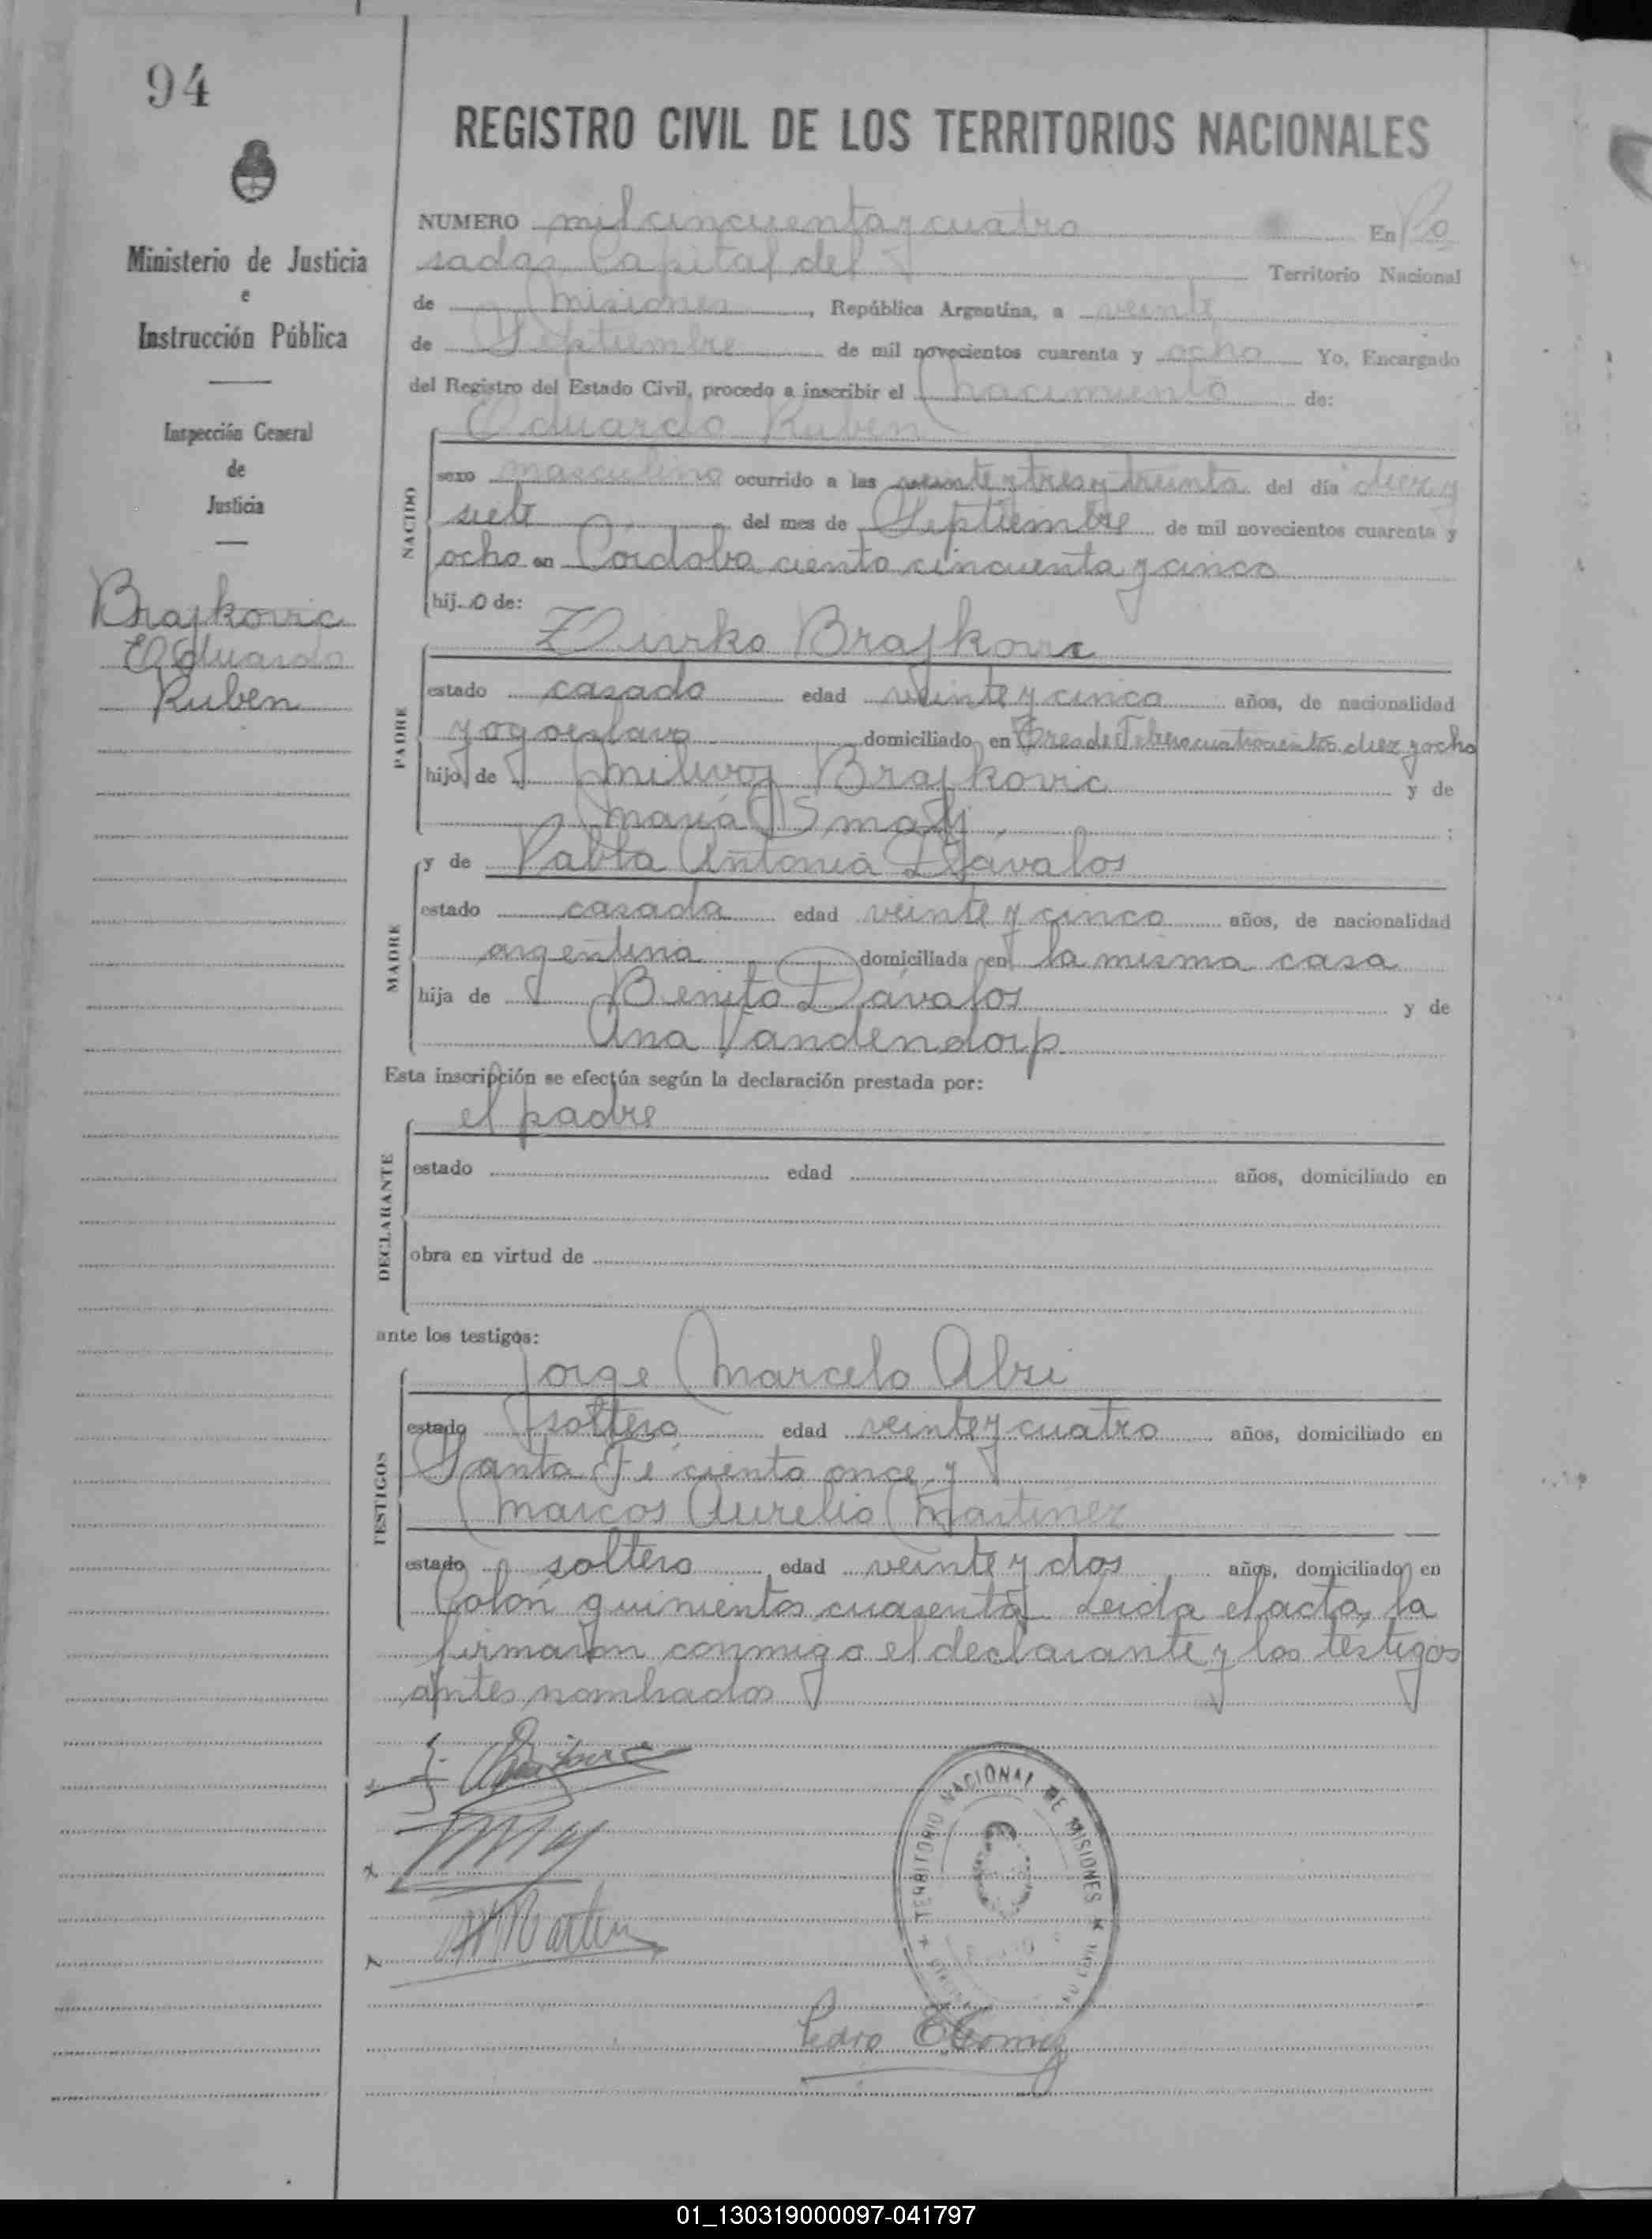 94
REGISTRO CIVIL DE LOS TERRITORIOS NACIONALES
Ministerio de Justicia
e
Instrucción Pública
Inspección General
de
Justicia
Brajkovic
Eduardo
Ruben
NUMERO mil cincuenta y cuatro En Po
sadas Capital del Territorio Nacional
de Misiones, República Argentina, a veinte
de Septiembre de mil novecientos cuarenta y ocho Yo, Encargado
del Registro del Estado Civil, procedo a inscribir el nacimiento de:
NACIDO
Eduardo Ruben
sexo masculino ocurrido a las veinte y tres y treinta del día diez y
siete del mes de Septiembre de mil novecientos cuarenta y
ocho en Córdoba ciento cincuenta y cinco
hijo de:
PADRE
Zivrko Brajkovic
estado casado edad veinte y cinco años, de nacionalidad
yogoeslava domiciliado en Tres de Febrero cuatrocientos diez y ocho
hijo de Milivoj Brajkovic y de
María ;
MADRE
y de Pabla Antonia Dávalos
estado casada edad veinte y cinco años, de nacionalidad
argentina domiciliada en la misma casa
hija de Benito Dávalos y de
Ana Vandendorp
Esta inscripción se efectúa según la declaración prestada por:
DECLARANTE
el padre
estado edad años, domiciliado en
obra en virtud de
ante los testigos:
TESTIGOS
Jorge Marcelo Abri
estado soltero edad veinte y cuatro años, domiciliado en
Santa Fé ciento once y
Marcos Aurelio Martinez
estado soltero edad veinte y dos años, domiciliado en
Colón quinientos cuarenta Leida el acta, la
firmaron conmigo el declarante y los testigos
antes nombrados
TERRITORIO NACIONAL DE MISIONES
Pedro E Gomez
01_130319000097-041797